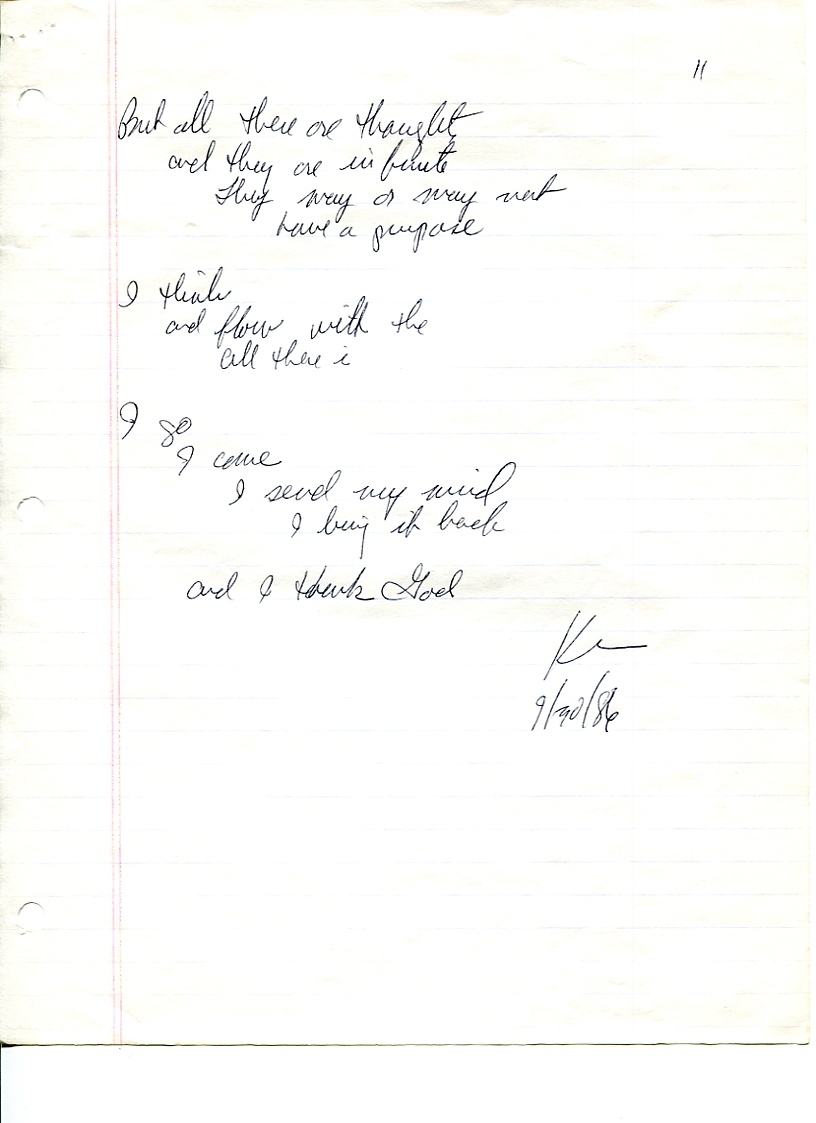 11
But all there are thought
and they are infinite
They may or may not
have a purpose
I think
and flow with the
all there is
I go
I come
I send my mind
I bring it back
and I thank God
9/30/86